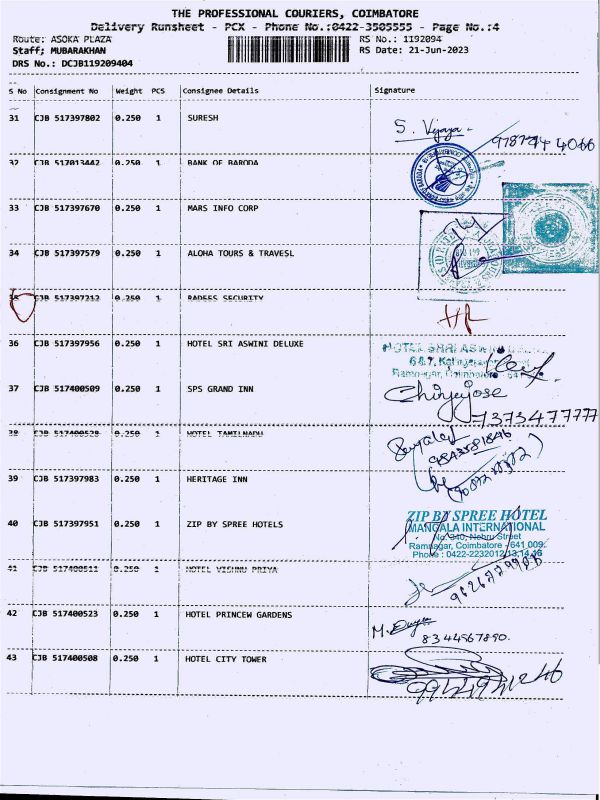 THE PROFESSIONAL COURIERS, COIMBATORE
Delivery Runsheet - PCX - Phone No.:0422-3505555 - Page No.:4
Route: ASOKA PLAZA RS No.: 1192094
Staff; MUBARAKHAN RS Date: 21-Jun-2023
DRS No.: DCJB119209404
S No Consignment No Weight PCS Consignee Details Signature
31 CJB 517397802 0.250 1 SURESH
S. Vijaya
32 CJB 517013442 0.250 1 BANK OF BARODA
33 CJB 517397670 0.250 1 MARS INFO CORP
34 CJB 517397579 0.250 1 ALOHA TOURS & TRAVESL
35 CJB 517397212 0.250 1 RADEES SECURITY
36 CJB 517397956 0.250 1 HOTEL SRI ASWINI DELUXE
Ramnagar, Coimbatore
37 CJB 517400509 0.250 1 SPS GRAND INN
7373477777
38 CJB 517400528 0.250 1 HOTEL TAMILNADU
39 CJB 517397983 0.250 1 HERITAGE INN
40 CJB 517397951 0.250 1 ZIP BY SPREE HOTELS
ZIP BY SPREE HOTEL
MANGALA INTERNATIONAL
No. 310, Nehru Street
Ramnagar, Coimbatore - 641 009.
Phone : 0422-2232012,13,14,16
41 CJB 517400511 0.250 1 HOTEL VISHNU PRIYA
42 CJB 517400523 0.250 1 HOTEL PRINCEW GARDENS
8344567890.
43 CJB 517400508 0.250 1 HOTEL CITY TOWER